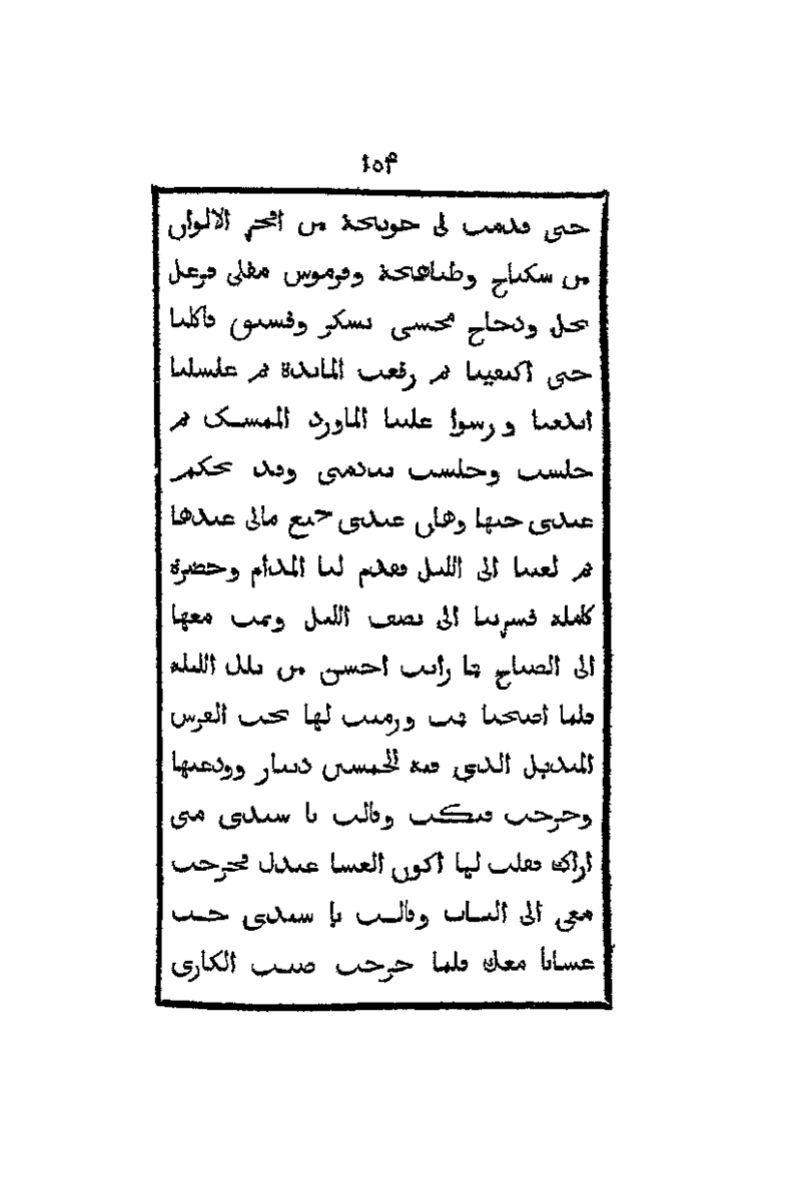 حتى قدمت لى خونجة من افخر الالوان
من سكباج وطباهجة وقرموس مقلى
بخل ودجاج محشى بسكر وفستق فاكلنا
حتى اكتفينا ثم رفعت المائدة ثم غسلنا
ايدينا ورشوا علينا الماورد الممسك ثم
جلست وجلست تنادمنى وقد تحكم
عندى حبها وهان عندى جميع مالى عندها
ثم لعبنا الى الليل فقدم لنا المدام وحضرة
كاملة فشربنا الى نصف الليل ونمت معها
الى الصباح فما رايت احسن من تلك الليلة
فلما اصبحنا قمت ورميت لها تحت الفرش
المنديل الذى فيه الخمسين دينار وودعتها
وخرجت فبكت وقالت يا سيدى متى
اراك فقلت لها اكون العشا عندك فخرجت
معى الى الباب وقالت يا سيدى جب
عشانا معك فلما خرجت صبت الكارى